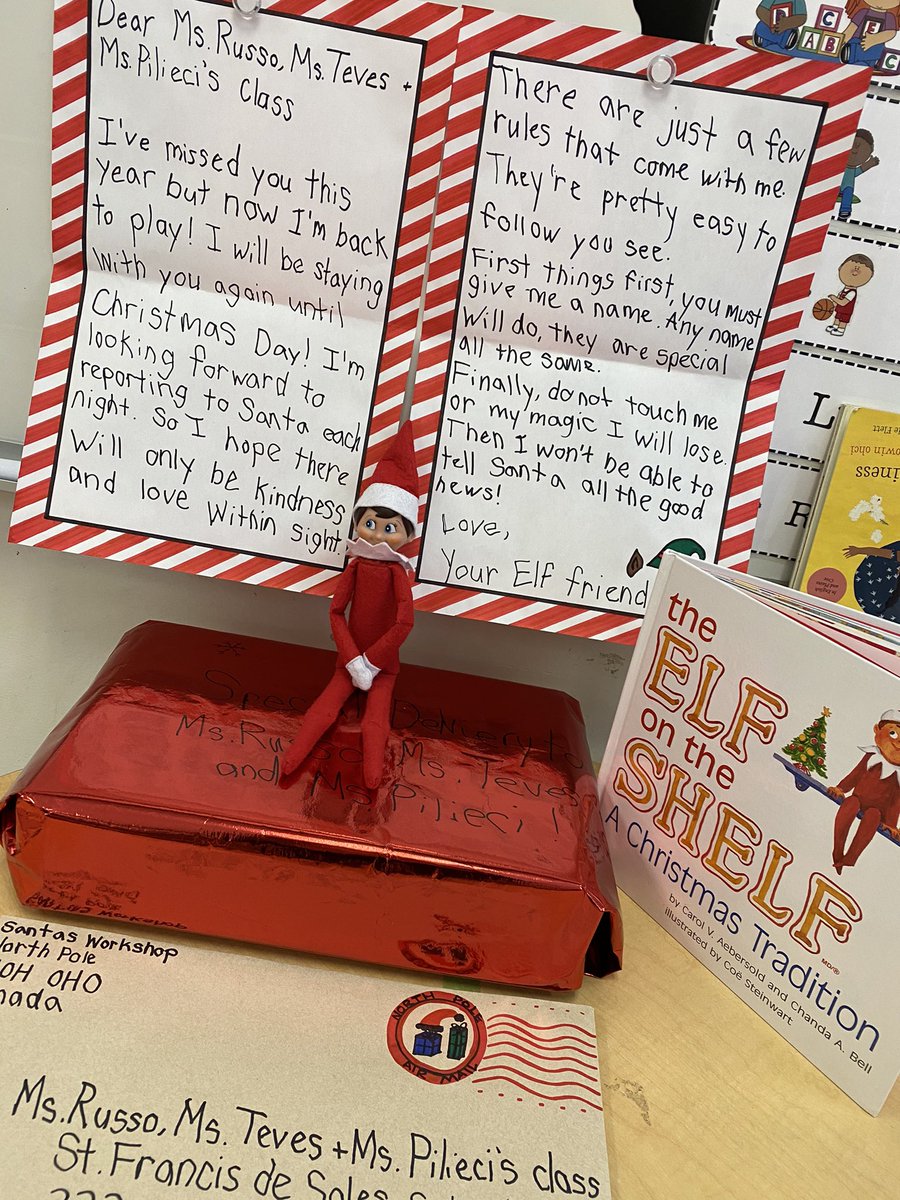 Dear Ms. Russo, Ms. Teves +
Ms. Pilieci's Class
I've missed you this
year but now I'm back
to play! I will be staying
with you again until
Christmas Day! I'm
looking forward to
reporting to Santa each
night. So I hope there
Will only be kindness
and love within sight.
There are just a few
rules that come with me.
They're pretty easy to
follow you see.
First things first, you must
give me a name. Any name
will do, they are special
all the same.
Finally, do not touch me
or my magic I will lose.
Then I won't be able to
tell Santa all the good
news!
Love,
Your Elf friend
Special Delivery to
Ms. Russo, Ms. Teves
and Ms. Pilieci!
the
ELF
on the
SHELF
A Christmas Tradition
by Carol V. Aebersold and Chanda A. Bell
illustrated by Coë Steinwart
Santas Workshop
North Pole
OH OHO
nada
NORTH POLE
AIR MAIL
Ms. Russo, Ms. Teves + Ms. Pilieci's class
St. Francis de Sales
F C E
A B C
L
R
iness